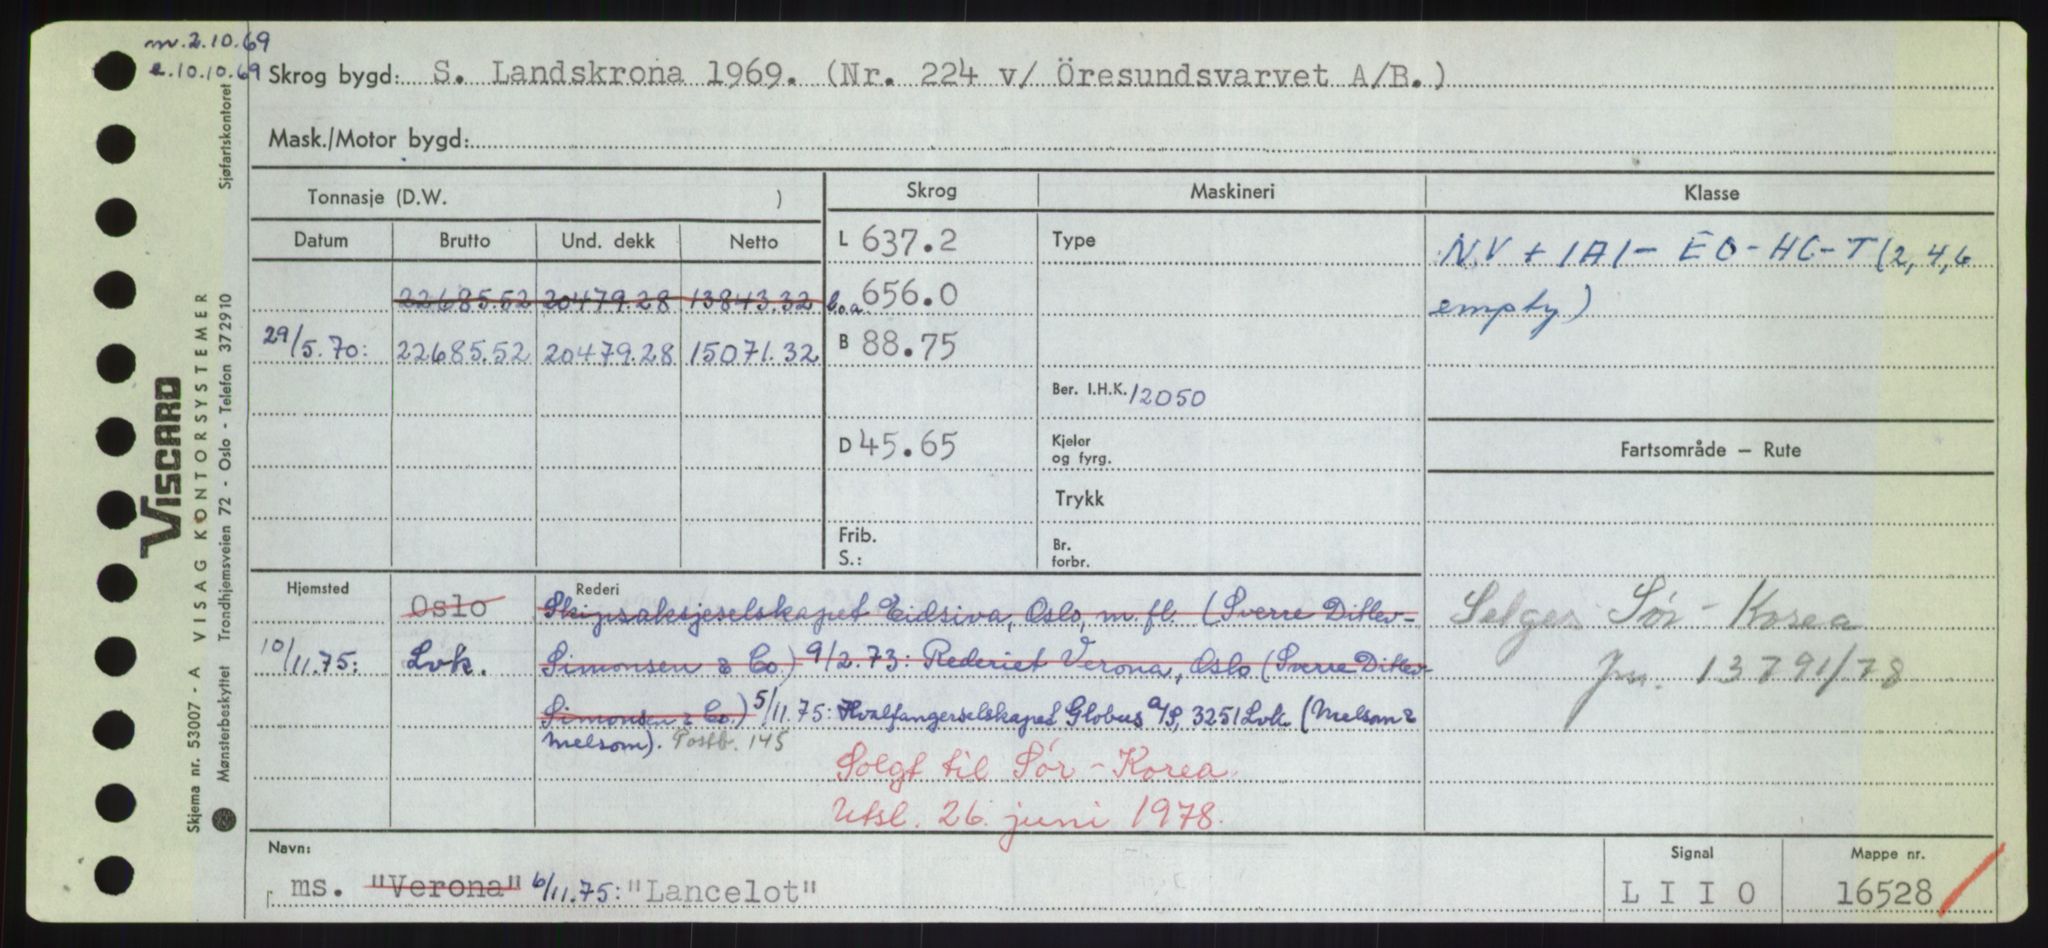 m. 2.10.69
e. 10.10.69
Skrog bygd: S. Landskrona 1969. (Nr. 224 v/ Öresundsvarvet A/B.)
Mask./Motor bygd:
Tonnasje (D.W. )
Skrog
Maskineri
Klasse
Datum Brutto Und. dekk Netto
L 637.2
Type
NV + 1A1 - EO - HC - T (2,4,6
22685.52 20479.28 13843.32
l.o.a. 656.0
empty)
29/5.70: 22685.52 20479.28 15071.32
B 88.75
Ber. I.H.K. 12050
D 45.65
Kjeler
og fyrg.
Fartsområde – Rute
Trykk
Frib.
S.:
Br.
forbr.
Hjemsted
Rederi
Oslo
Skipsaksjeselskapet Eidsiva, Oslo, m.fl. (Sverre Ditlev-
Selges Sør-Korea
10/11.75: Lvk.
Simonsen & Co.) 9/2.73: Rederiet Verona, Oslo (Sverre Ditlev
jnr. 13791/78
Simonsen & Co.) 5/11.75: Hvalfangerselskapet Globus A/S, 3251 Lvk. (Melsom &
Melsom). Postb. 145
Solgt til Sør-Korea
Utsl. 26. juni 1978.
Navn:
Signal
Mappe nr.
ms. "Verona" 6/11.75: "Lancelot"
L I I O
16528
Sjøfartskontoret
VISCARD
VISAG KONTORSYSTEMER
Skjema nr. 53007 - A
Mønsterbeskyttet Trondhjemsveien 72 - Oslo - Telefon 372910